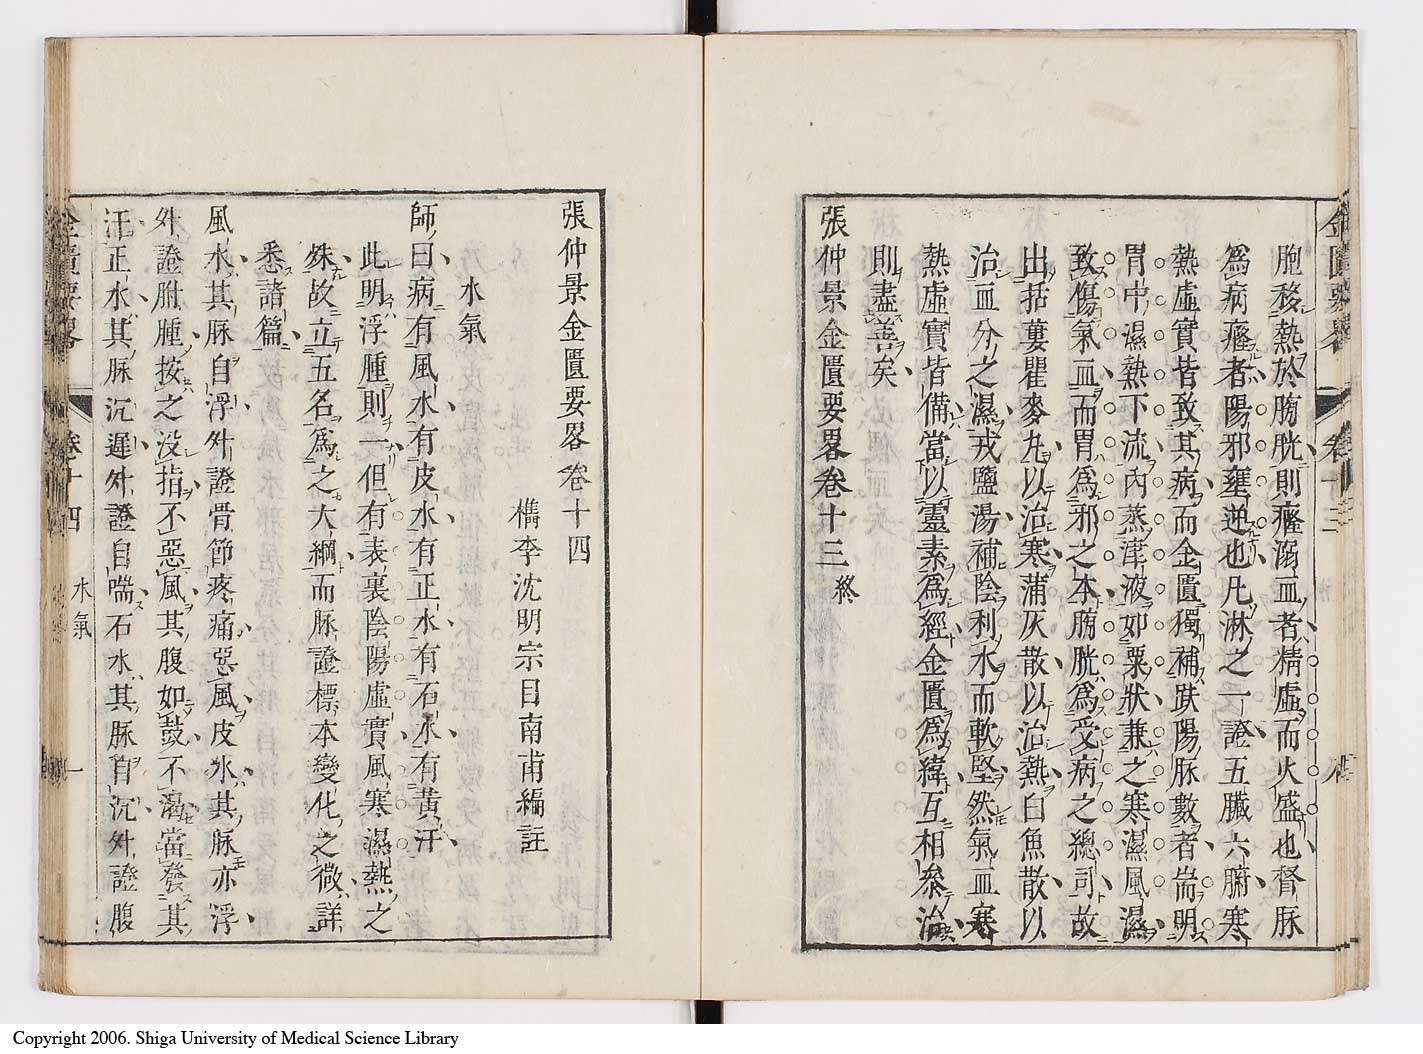 胞移熱於膀胱則癃溺血者精虛而火盛也督脉
爲病癃者陽邪壅逆也凡淋之一證五臟六腑寒
熱虛實皆致其病而金匱獨補趺陽脉數者耑明
胃中濕熱下流內蒸津液如粟狀兼之寒濕風濕
致傷氣血而胃爲邪之本膀胱爲受病之總司故
出括蔞瞿麥丸以治寒蒲灰散以治熱白魚散以
治血分之濕戎鹽湯補陰利水而軟堅然氣血寒
熱虛實皆備當以靈素爲經金匱爲緯互相叅治
則盡善矣
張仲景金匱要畧卷十三終
張仲景金匱要畧卷十四
檇李沈明宗目南甫編註
水氣
師曰病有風水有皮水有正水有石水有黃汗
此明浮腫則一但有表裏陰陽虛實風寒濕熱之
殊故立五名爲之大綱而脉證標本變化之微詳
悉諸篇
風水其脉自浮外證骨節疼痛惡風皮水其脉亦浮
外證胕腫按之没指不惡風其腹如鼓不渴當發其
汗正水其脉沉遲外證自喘石水其脉自沉外證腹
金匱要畧
卷十四
水氣
一
Copyright 2006. Shiga University of Medical Science Library